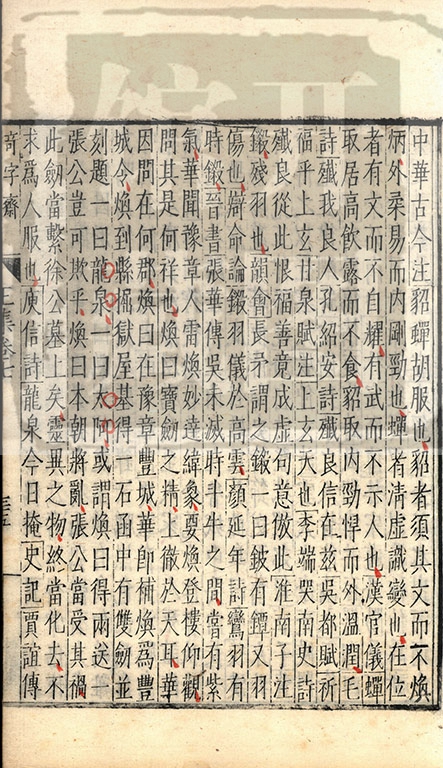 中華古今注貂蟬胡服也貂者須其文而不煥
炳外柔易而内剛勁也蟬者清虛識變也在位
者有文而不自耀有武而不示人也漢官儀蟬
取居高飲露而不食貂取内勁悍而外溫潤毛
詩殲我良人孔紹安詩殲良信在兹吳都賦祈
福乎上玄甘泉賦注上玄天也李端哭南史詩
殲良從此恨福善竟成虛句意倣此淮南子注
鎩殘羽也韻會長矛謂之鎩一曰鈹有鐔又羽
傷也辯命論鎩羽儀於高雲顏延年詩鸞羽有
時鎩晉書張華傳吳未滅時斗牛之間嘗有紫
氣華聞豫章人雷煥妙達緯象要煥登樓仰觀
問其是何祥也煥曰寶劒之精上徹於天耳華
因問在何郡煥曰在豫章豐城華卽補煥爲豐
城令煥到縣掘獄屋基得一石函中有雙劒並
刻題一曰龍泉一曰太阿或謂煥曰得兩送一
張公豈可欺乎煥曰本朝將亂張公當受其禍
此劒當繫徐公墓上矣靈異之物終當化去不
求爲人服也庾信詩龍泉今日掩史記賈誼傳
奇字齋